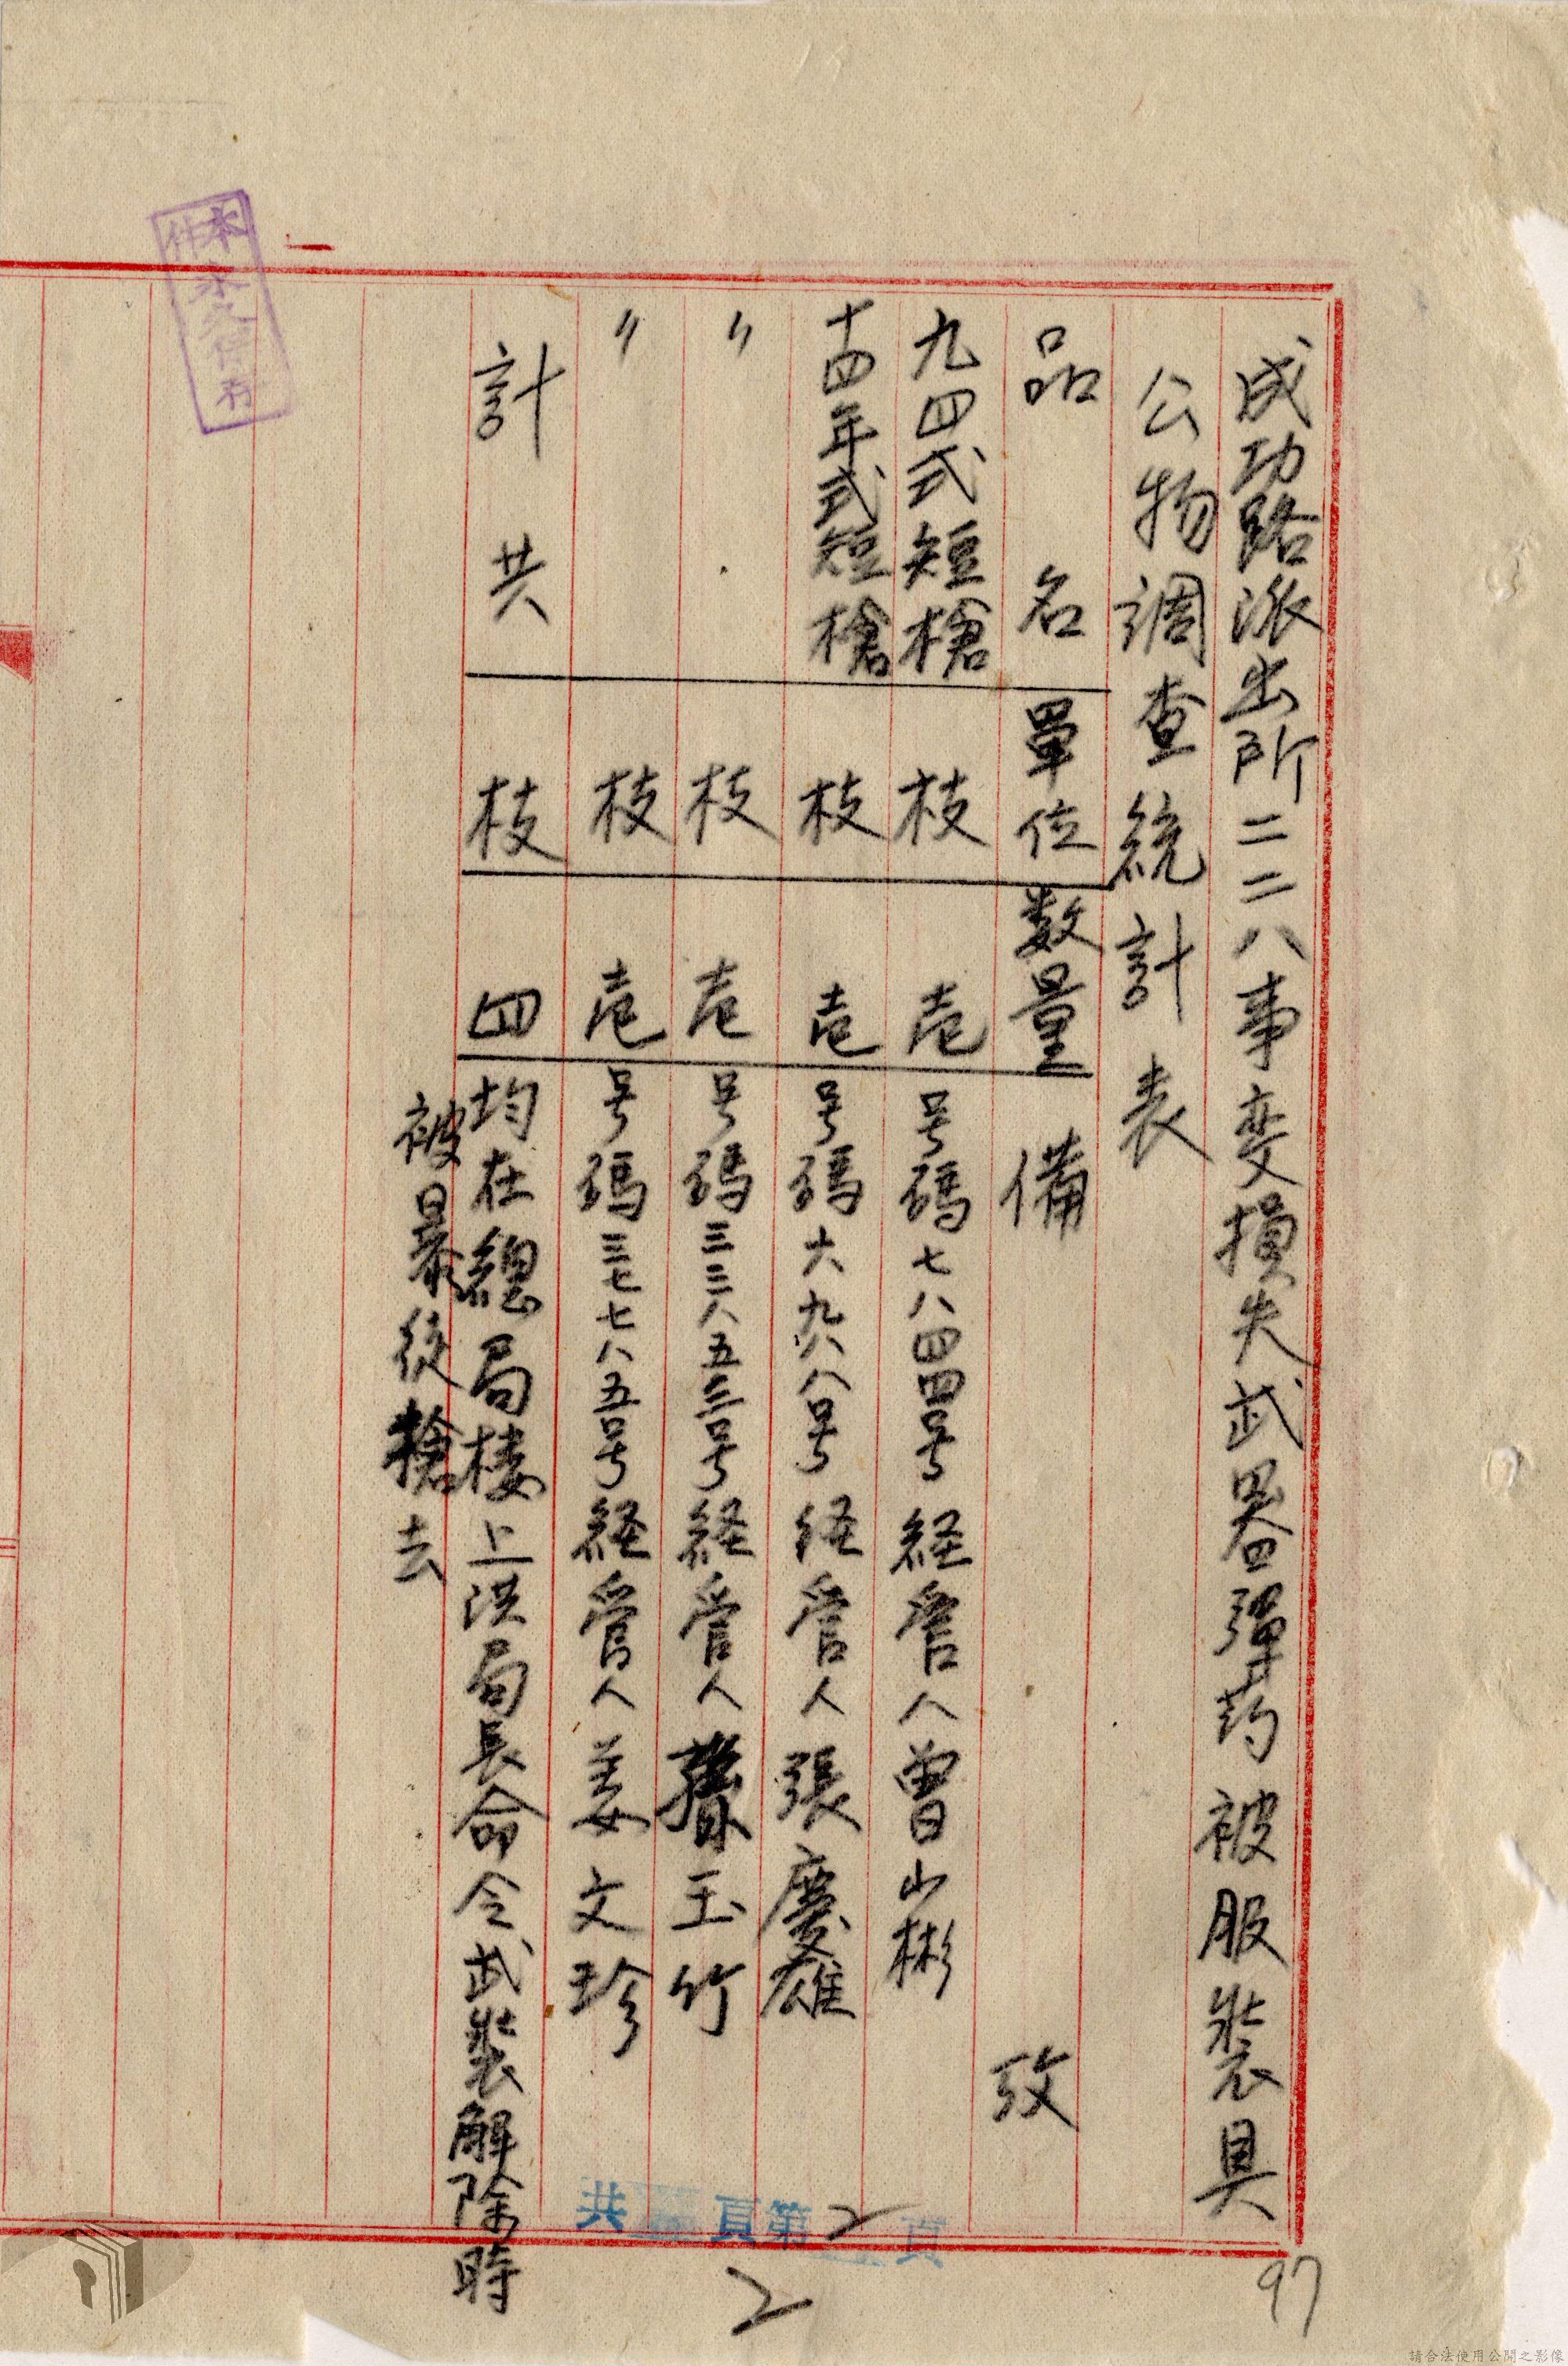 成功路派出所二二八事变損失武器彈药被服裝具
公物調查統計表
品名 單位 数量 備攷
九四式短槍 枝 壱 号碼七八四四号 経管人曾山彬
十四年式短槍 枝 壱 号碼六九六八号 経管人張慶雄
〃 枝 壱 号碼三三八五三号 経管人 玉竹
〃 枝 壱 号碼三七七八五号 経管人姜文珍
計共 枝 四 均在總局楼上洪局長命令武裝解除時
被暴徒搶去
本件永久保存
共 頁第2頁
2
97
請合法使用公開之影像